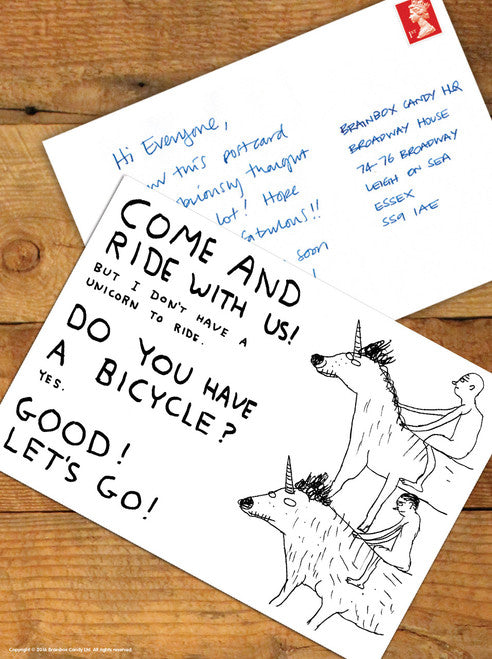 1st
Hi Everyone,
this postcard
thought
lot! Hope
soon
!
BRAINBOX CANDY HQ
BROADWAY HOUSE
74-76 BROADWAY
LEIGH ON SEA
ESSEX
SS9 1AE
COME AND
RIDE WITH US!
BUT I DON'T HAVE A
UNICORN TO RIDE.
DO YOU HAVE
A BICYCLE?
YES.
GOOD!
LET'S GO!
Copyright © 2016 Brainbox Candy Ltd. All rights reserved.